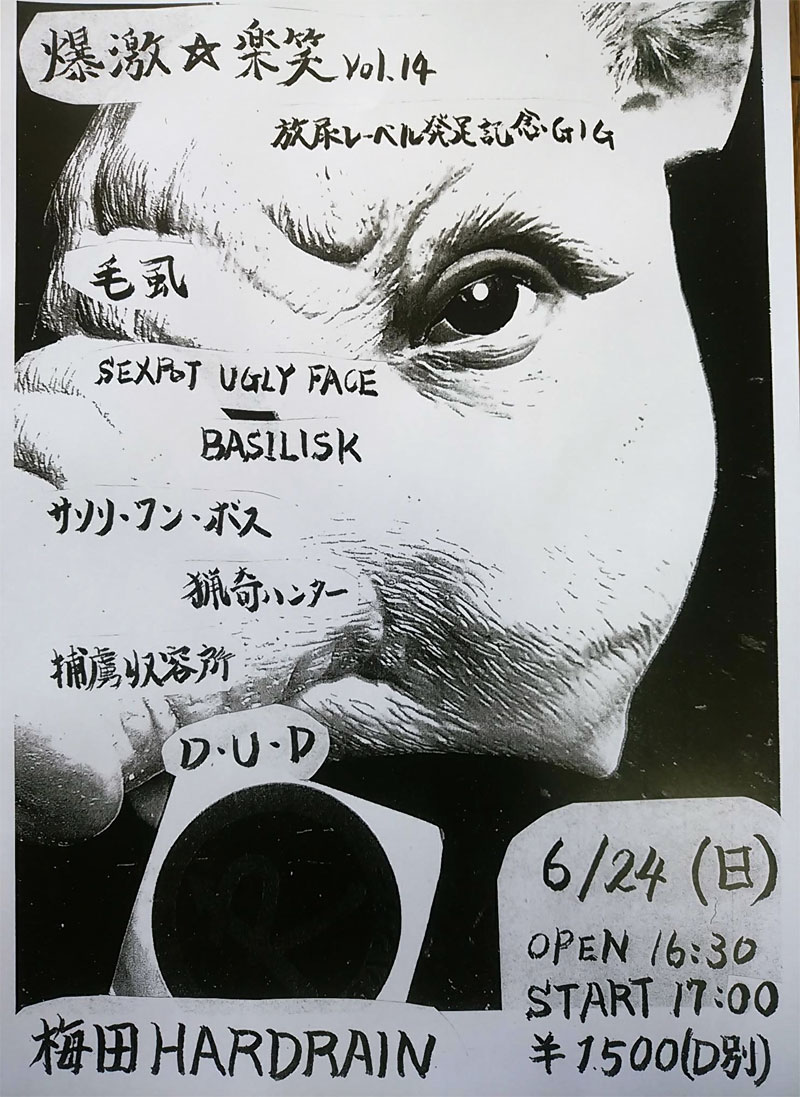 爆激☆楽笑 Vol.14
放尿レーベル発足記念・GIG
毛虱
SEXPOT UGLY FACE
BASILISK
サソリ・ワン・ボス
猟奇ハンター
捕虜収容所
D・U・D
6/24 (日)
OPEN 16:30
START 17:00
¥1.500(D別)
梅田HARDRAIN